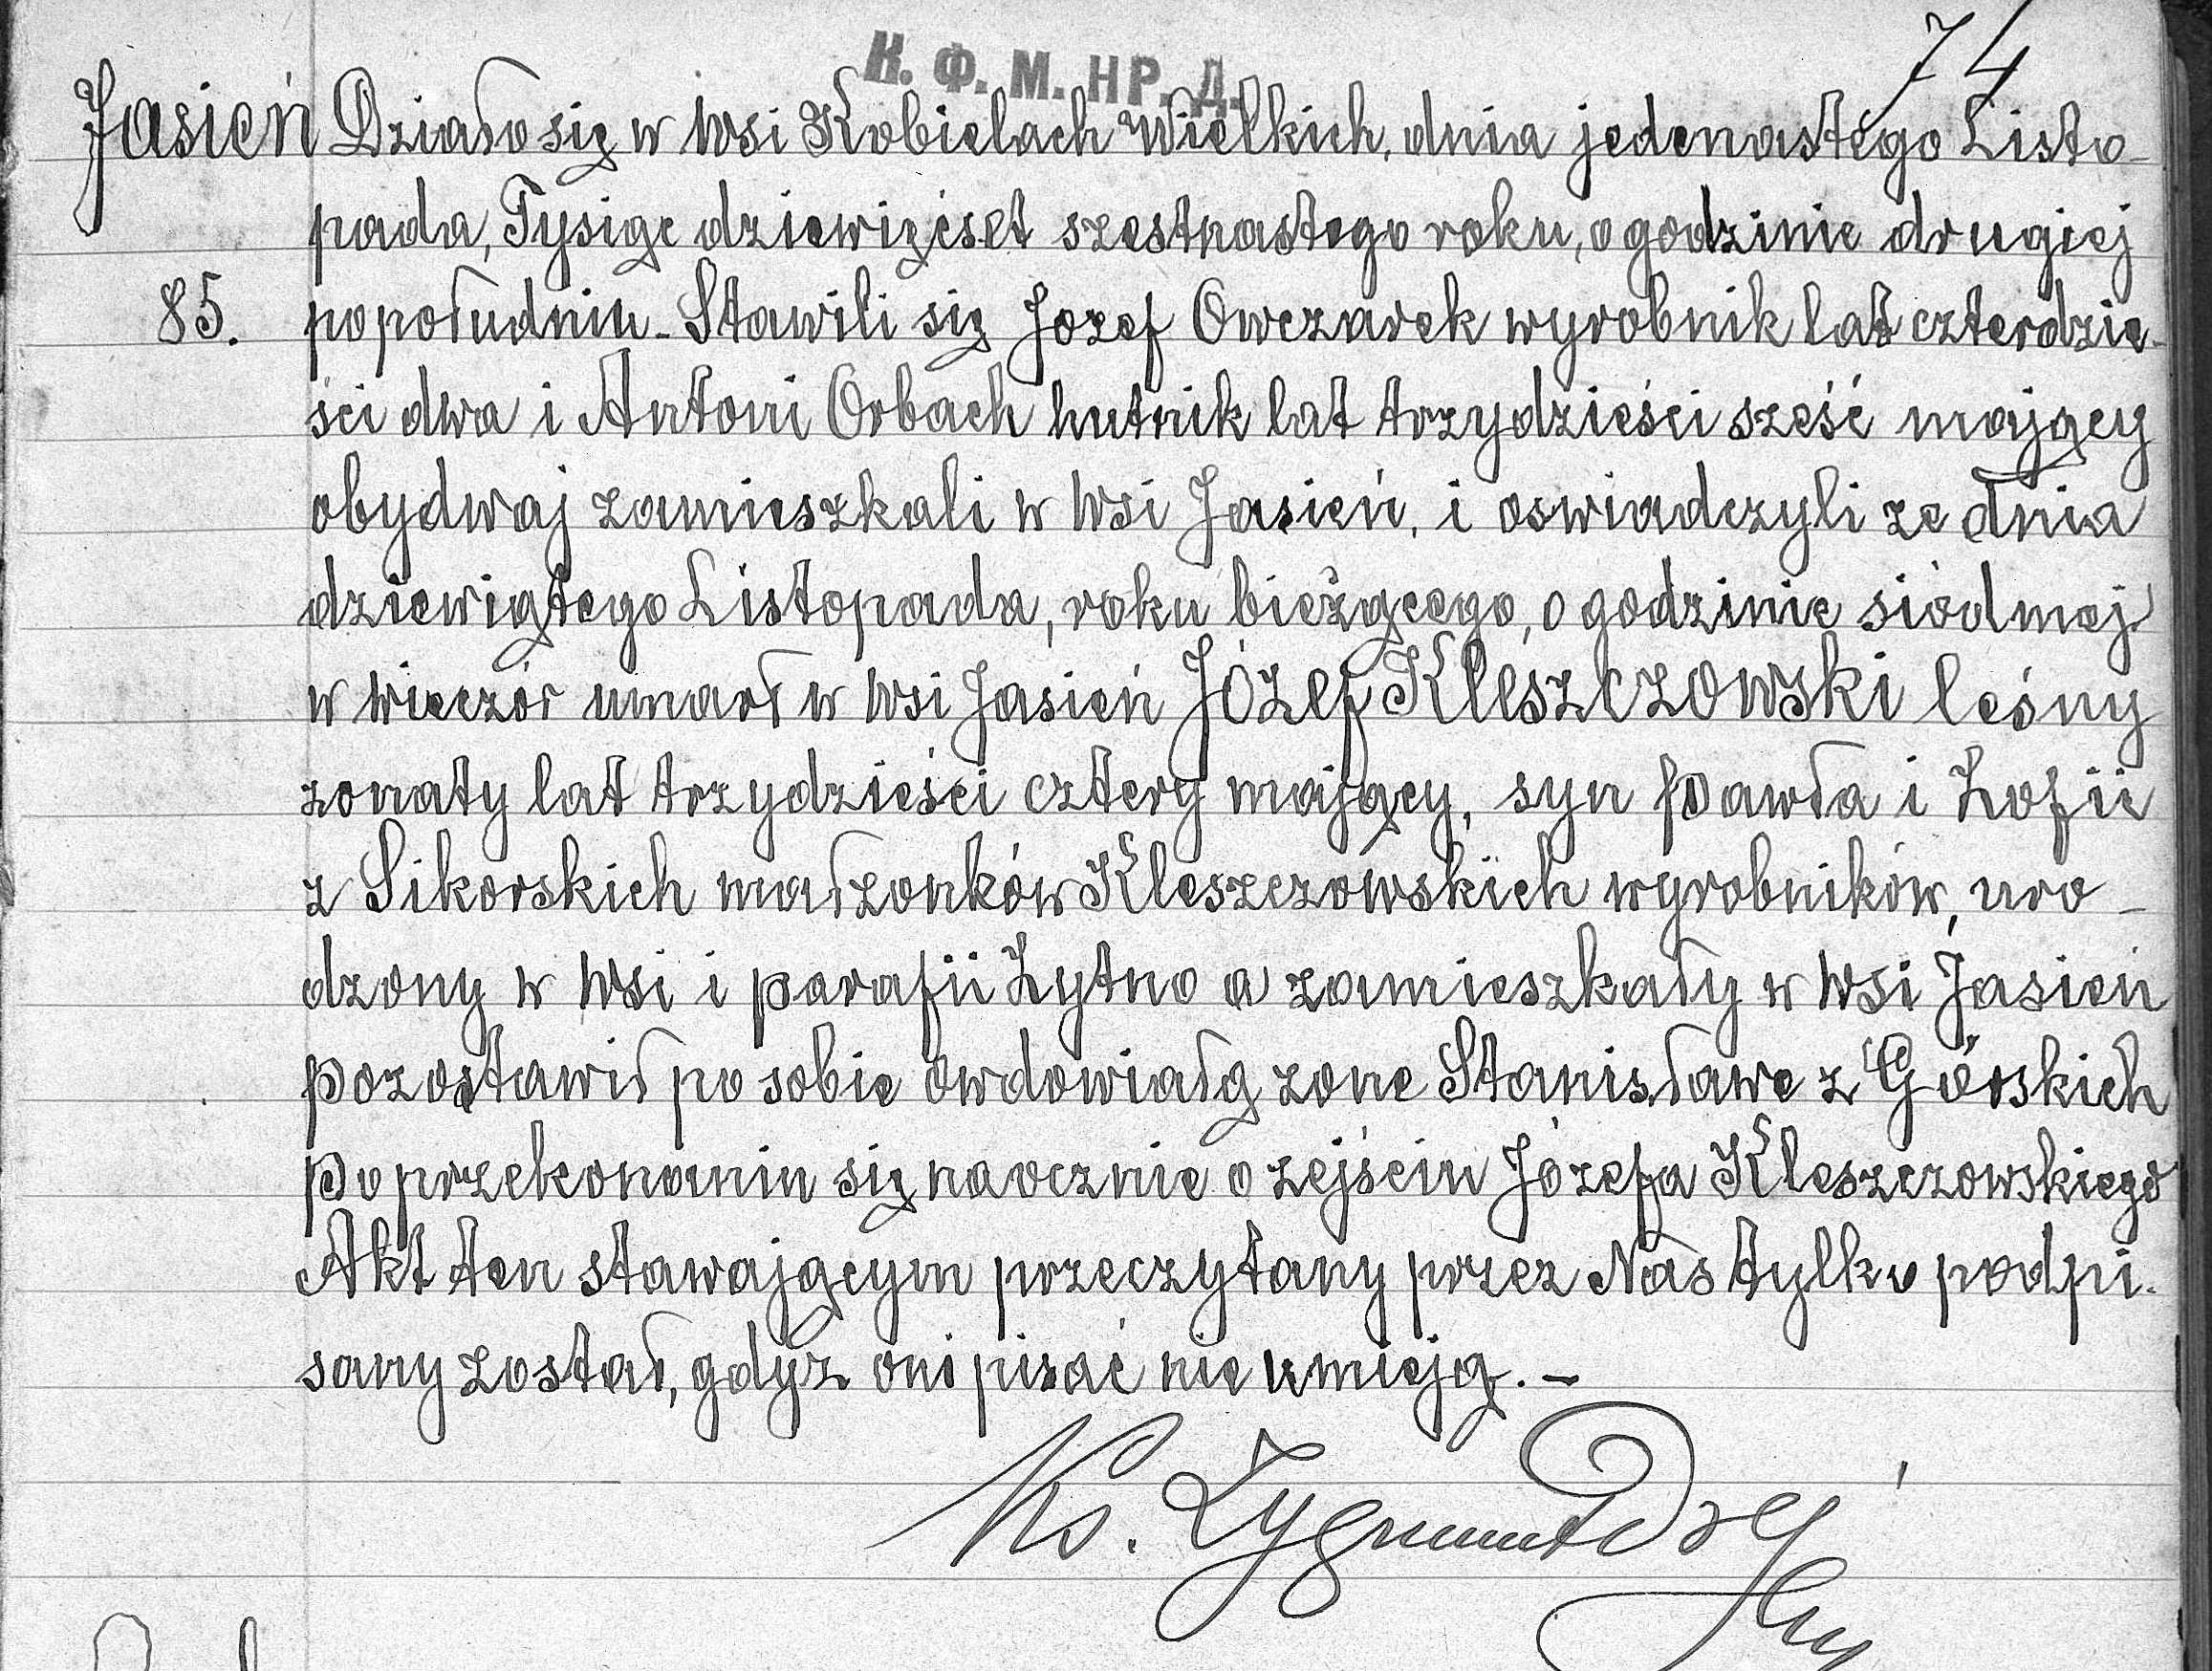 74
К. Ф. М. НР. Д.
Jasień Działo się w wsi Kobielach Wielkich, dnia jedenastego Listo-
pada, Tysiąc dziewięćset szestnastego roku, o godzinie drugiej
85. popołudniu - Stawili się Jozef Owczarek wyrobnik lat czterdzie-
ści dwa i Antoni Orbach hutnik lat trzydzieści sześć mający
obydwaj zamieszkali w wsi Jasień, i oswiadczyli ze dnia
dziewiątego Listopada, roku bieżącego, o godzinie siódmej
w wieczór umarł w wsi Jasień Józef Kleszczowski leśny
zonaty lat trzydzieści cztery mający, syn Pawła i Zofii
z Sikorskich małzonków Kleszczowskich wyrobników, uro-
dzony w wsi i parafii Zytno a zamieszkały w wsi Jasień
pozostawił po sobie owdowiałą zone Stanisławe z Górskich
po przekonaniu się naocznie o zejściu Józefa Kleszczowskiego
Akt ten stawającym przeczytany przez Nas tylko podpi-
sany został, gdyż oni pisać nie umieją. -
Ks. Zygmunt